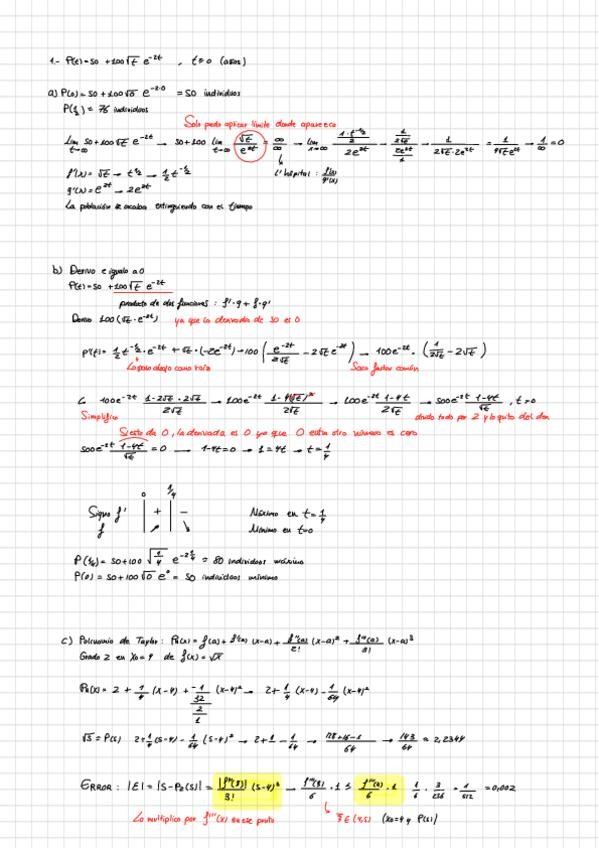 1.- P(t) = 50 + 100√t e^-2t , t ≥ 0 (años)
a) P(0) = 50 + 100√0 e^-2·0 = 50 individuos
P(½) = 76 individuos
Solo puedo aplicar límite donde aparece ∞
Lim t→∞ 50 + 100√t e^-2t → 50 + 100 lim t→∞ √t/e^2t = ∞/∞ → lim x→∞ (1·t^-1/2 / 2)/(2e^2t) → (1/(2√t))/(2e^2t/1) → 1/(2√t·2e^2t) = 1/(4√t e^2t) → 1/∞ = 0
f(x) = √t → t^1/2 → ½ t^-1/2
L'hôpital : f'(x)/g'(x)
g'(x) = e^2t → 2e^2t
La población se acaba extinguiendo con el tiempo
b) Derivo e igualo a 0
P(t) = 50 + 100√t e^-2t
producto de dos funciones : f'·g + f·g'
Derivo 100(√t·e^-2t) ya que la derivada de 50 es 0
P'(t) = ½ t^-1/2·e^-2t + √t·(-2e^-2t) → 100 (e^-2t/(2√t) - 2√t e^-2t) → 100e^-2t·(1/(2√t) - 2√t)
Lo paso abajo como raíz Saco factor común
100e^-2t (1-2√t·2√t)/(2√t) → 100e^-2t (1-4(√t)^2)/(2√t) → 100e^-2t (1-4t)/(2√t) → 50e^-2t (1-4t)/√t , t > 0
Simplifico divido todo por 2 y lo quito del den
Si esto da 0, la derivada es 0 ya que el otro número es cero
50e^-2t (1-4t)/√t = 0 → 1-4t = 0 → 1 = 4t → t = 1/4
0 1/4
Signo f' + - Máximo en t = 1/4
f ↗ ↘ Mínimo en t=0
P(¼) = 50 + 100 √(1/4) e^-2·1/4 = 80 individuos máximo
P(0) = 50 + 100√0 e^0 = 50 individuos mínimo
c) Polinomio de Taylor : Pn(x) = f(a) + f'(a) (x-a) + f''(a)/2! (x-a)^2 + f'''(a)/3! (x-a)^3
Grado 2 en x0 = 4 de f(x) = √x
P2(x) = 2 + 1/4 (x-4) + (-1/32)/(2/1) (x-4)^2 → 2 + 1/4 (x-4) - 1/64 (x-4)^2
√5 = P(5) 2 + 1/4 (5-4) - 1/64 (5-4)^2 → 2 + 1/4 - 1/64 → (128+16-1)/64 → 143/64 = 2,2344
ERROR : |E| = |5-P2(5)| = |f'''(ξ)|/3! (5-4)^3 → f'''(ξ)/6 · 1 ≤ f'''(4)/6 · 1 1/6 · 3/256 = 1/512 = 0,002
Lo multiplico por f'''(x) en ese punto ξ ∈ (4,5) (x0=4 y P(5))